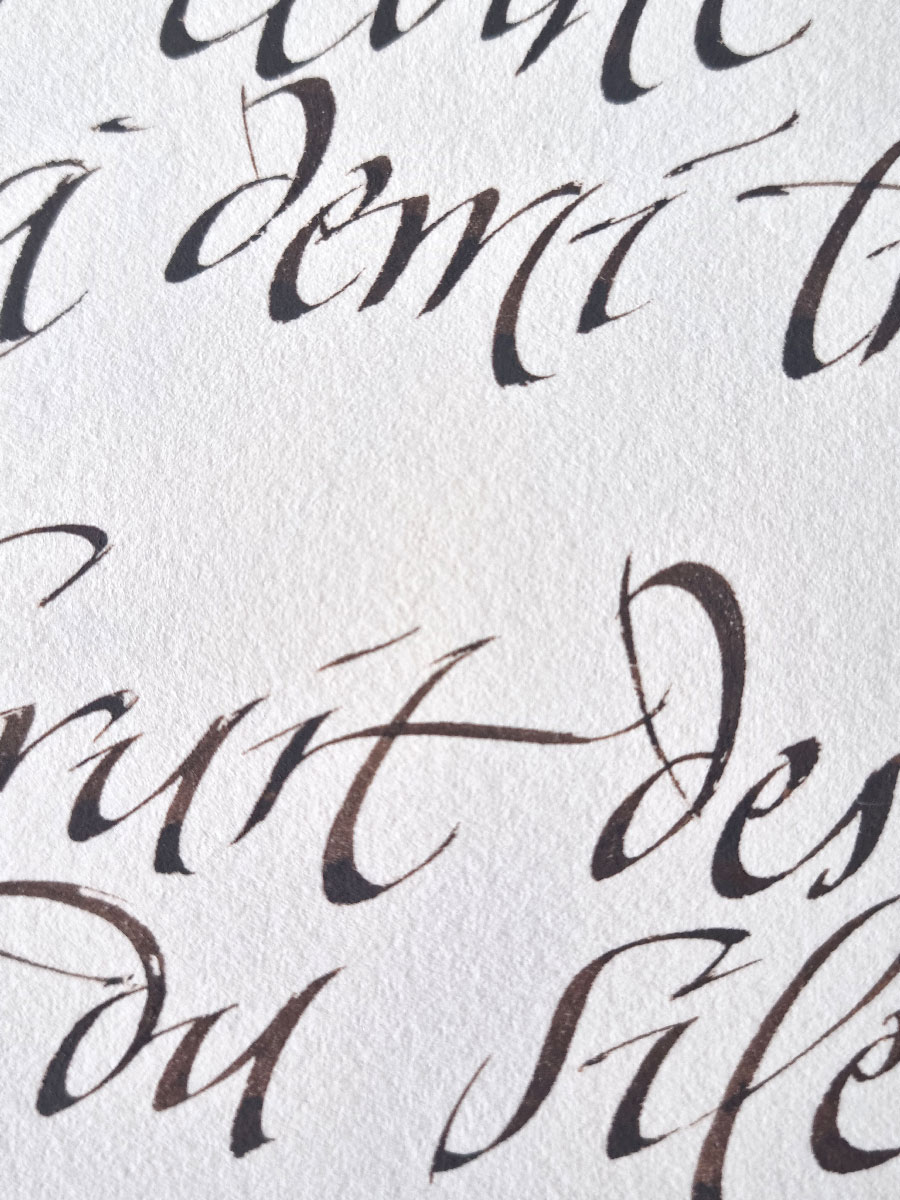 à demi
ruit des
du sile